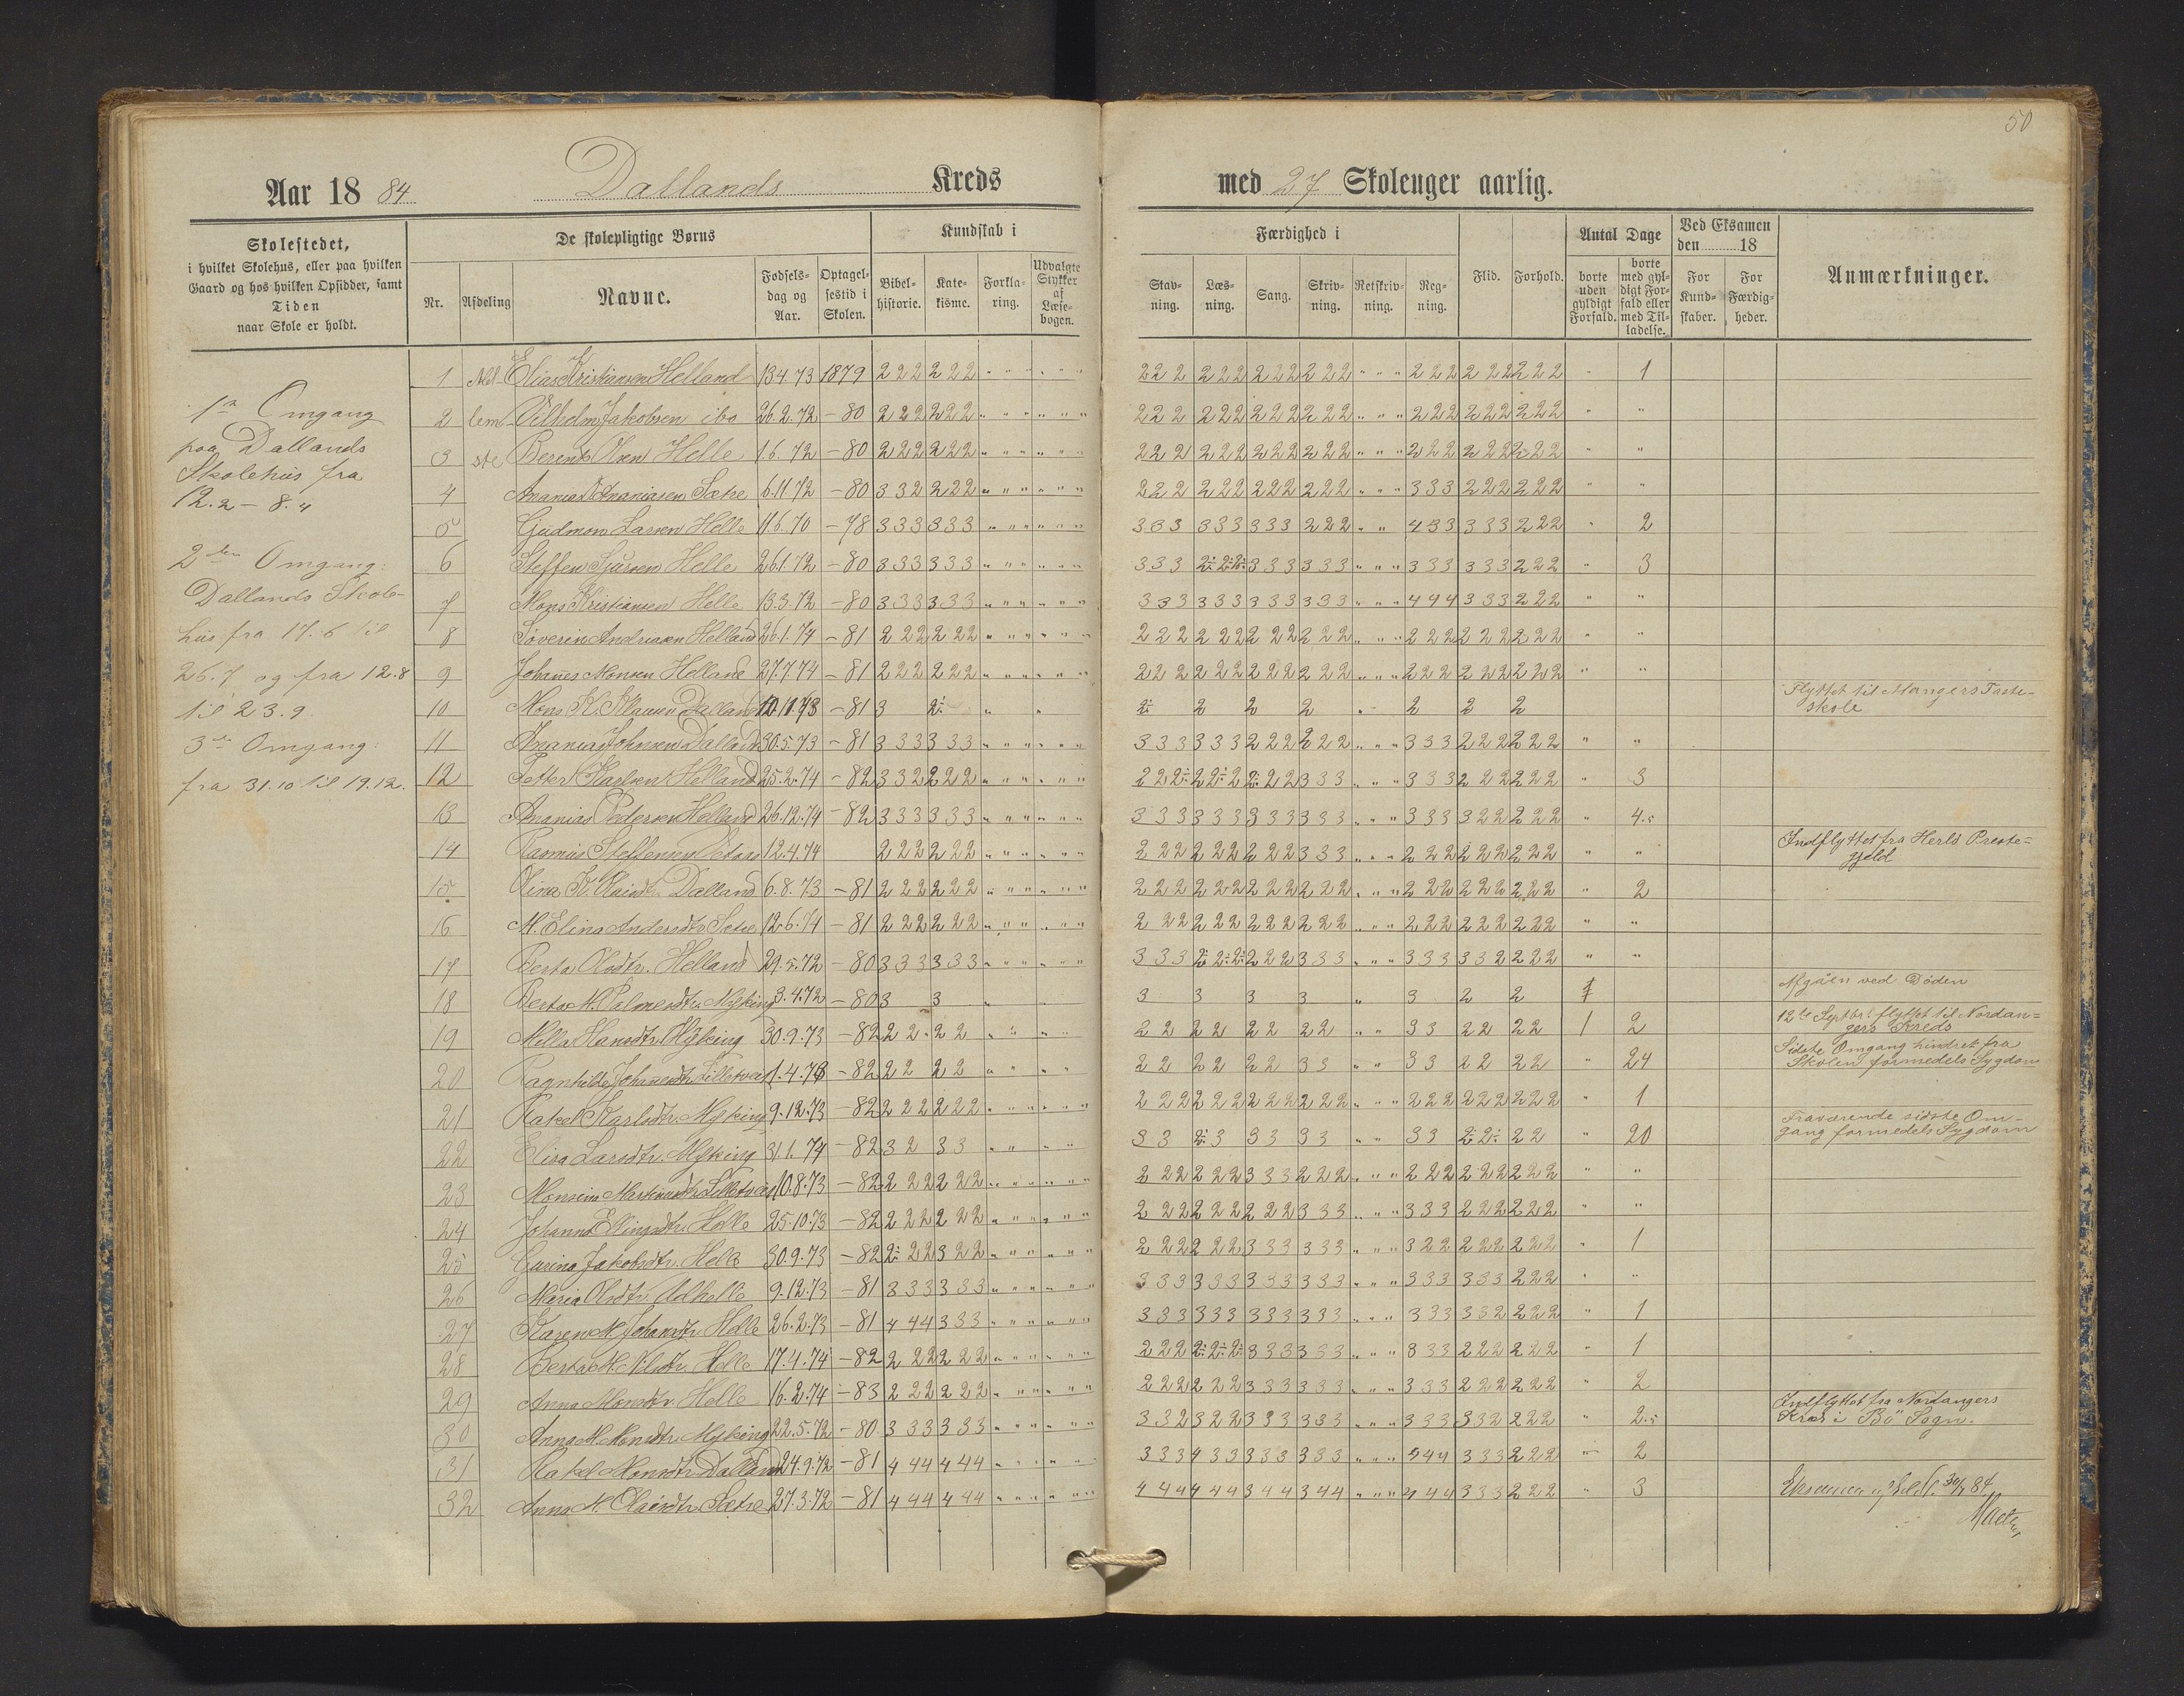 50
Aar 1884 Dallands Kreds med 27 Skoleuger aarlig.
Skolestedet,
i hvilket Skolehus, eller paa hvilken
Gaard og hos hvilken Opsidder, samt
Tiden
naar Skole er holdt.
De skolepligtige Børns
Nr. Afdeling Navne. Fødselsdag og Aar. Optagelsestid i Skolen.
Kundskab i
Bibelhistorie. Katekisme. Forklaring. Udvalgte Stykker af Læsebogen.
Færdighed i
Stavning. Læsning. Sang. Skrivning. Retskrivning. Regning.
Flid. Forhold.
Antal Dage
borte uden gyldigt Forfald. borte med gyldigt Forfald eller med Tilladelse.
Ved Eksamen
den 18
For Kundskaber. For Færdigheder.
Anmærkninger.
1ste Omgang
paa Dallands
Skolehus fra
12.2 – 8.4
2den Omgang:
Dallands Skole-
hus fra 17.6 til
26.7 og fra 12.8
til 23.9
3die Omgang:
fra 31.10 til 19.12.
1 Elias Kristiansen Helland 13.4.73 1879 222 222 222 222 222 222 222 222 222 1
2 Vilhelm Jakobsen ibd 26.2.72 –80 222 222 222 222 222 222 222 222 222
3 Berent Olsen Helle 1.6.72 –80 222 222 222 222 222 222 222 222 222
4 Ananias Ananiasen Sætre 6.11.72 –80 332 222 222 222 222 222 333 222 222
5 Gudmon Larsen Helle 11.6.70 –78 333 333 333 333 333 222 433 333 222 2
6 Steffen Sjursen Helle 26.1.72 –80 333 333 333 2÷2÷2÷ 333 333 333 333 222 3
7 Mons Kristiansen Helle 13.3.72 –80 333 333 333 333 333 333 444 333 222
8 Severin Andreasen Helland 26.1.74 –81 222 222 222 222 222 222 222 222 222
9 Johannes Monsen Helland 27.7.74 –81 222 222 222 222 222 222 222 222 222
10 Mons K. Dalland 10.11.73 –81 3 2÷ 2÷ 2 2 2 2 2 2 Flyttet til Mangers Faste-
skole
11 Ananias Johnsen Dalland 30.5.73 –81 333 333 333 333 222 222 333 222 222
12 Petter Helland 25.2.74 –82 332 222 222÷ 22÷2 2÷22 333 333 222 222 3
13 Ananias Pedersen Helland 26.12.74 –82 333 333 333 333 333 333 333 322 222 4.5
14 Rasmus Steffensen 12.4.74 222 222 222 222 222 333 222 222 222 Indflyttet fra Herlø Præste-
gjeld
15 Olina K. Dalland 6.8.73 –81 222 222 222 222 222 222 222 222 222 2
16 M. Elina Andersdtr. Sætre 12.6.74 –81 222 222 222 222 222 222 222 222 222
17 Berta Olsdtr. Helland 29.5.72 –80 333 333 333 2÷2÷2÷ 222 333 333 332 222
18 Berta M. Palmersdtr. Myking 3.4.72 –80 3 3 3 3 3 3 3 2 2 1 Afgåen ved Døden
19 Milla Hansdtr. Myking 30.9.73 –82 22 22 22 22 22 22 33 22 22 1 2 12te Septbr. flyttet til Nordan-
gers Kreds
20 Ragnhilde Johannesdtr. Lilletvedt 1.4.73 –82 22 22 22 22 22 33 33 22 22 24 Sidste Omgang hindret fra
Skolen formedels Sygdom
21 Rakel Karlsdtr. Myking 9.12.73 –82 222 222 222 222 222 222 222 222 222 1
22 Elisa Larsdtr. Myking 31.1.74 –82 32 33 33 2÷3 33 33 33 2÷2÷ 22 20 Fraværende sidste Om-
gang formedels Sygdom
23 Monsine Martinusdtr. Lilletvedt 10.8.73 –82 222 222 222 222 333 222 222 222 222
24 Johanna Ellingsdtr. Helle 25.10.73 –82 222 222 222 222 222 333 333 222 222
25 Gurina Jakobsdtr. Helle 30.9.73 –82 2÷22 322 222 222 333 333 322 222 222 1
26 Maria Olsdtr. Udhelle 9.12.73 –81 333 333 333 333 333 333 333 333 222
27 Karen M. Johansdtr. Helle 26.2.73 –81 444 333 333 333 333 333 333 332 222 1
28 Berta M. Nilsdtr. Helle 17.4.74 –82 222 222 222 2÷2÷2÷ 333 333 333 222 222 1
29 Anna Monsdtr. Helle 16.2.74 –83 222 222 222 222 333 333 333 222 222 2
30 Anna M. Monsdtr. Myking 22.5.72 –80 333 333 332 322 333 333 333 332 222 2.5 Indflyttet fra Nordangers
Kreds i Bø Sogn.
31 Rakel Monsdtr. Dalland 24.9.72 –81 444 444 333 433 333 333 544 333 222 2
32 Anna M. Olaisdtr. Sætre 27.3.72 –81 444 444 444 444 344 344 444 333 222 3 84